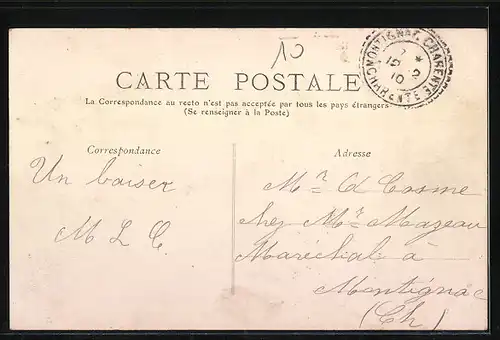 10
CARTE POSTALE
La Correspondance au recto n'est pas acceptée par tous les pays étrangers
(Se renseigner à la Poste)
MONTIGNAC-CHARENTE
CHARENTE
Correspondance
Un baiser
M L C
Adresse
Mr d Cosme
chez Mr Mazeau
Maréchal à
Montignac
(Ch)